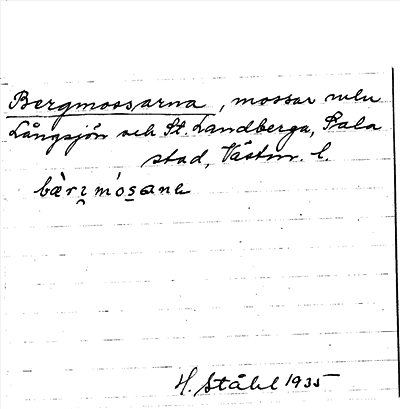 Bergmossarna, mossar mln
Långsjön och St. Landberga, Sala
stad, Västm. l.
bæ̀ri̯ mósana
H. Ståhl 1935